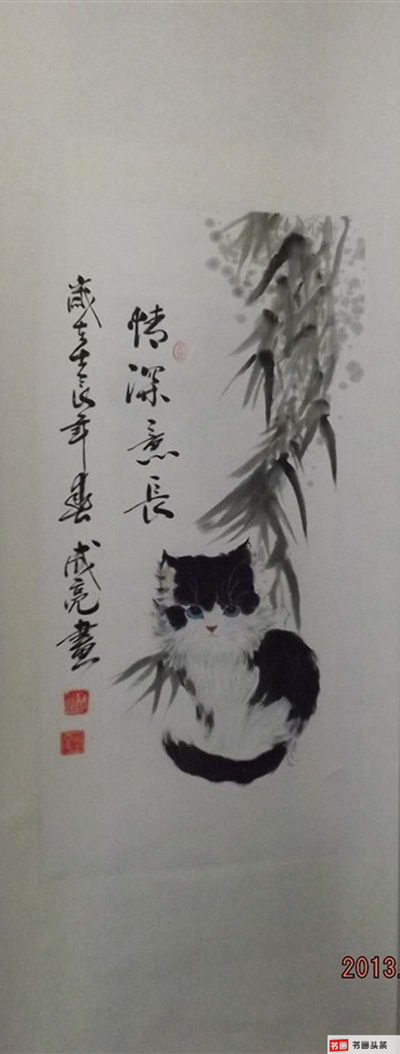 情深意長
歲在壬辰年春成亮畫
2013.
书画 书画头条